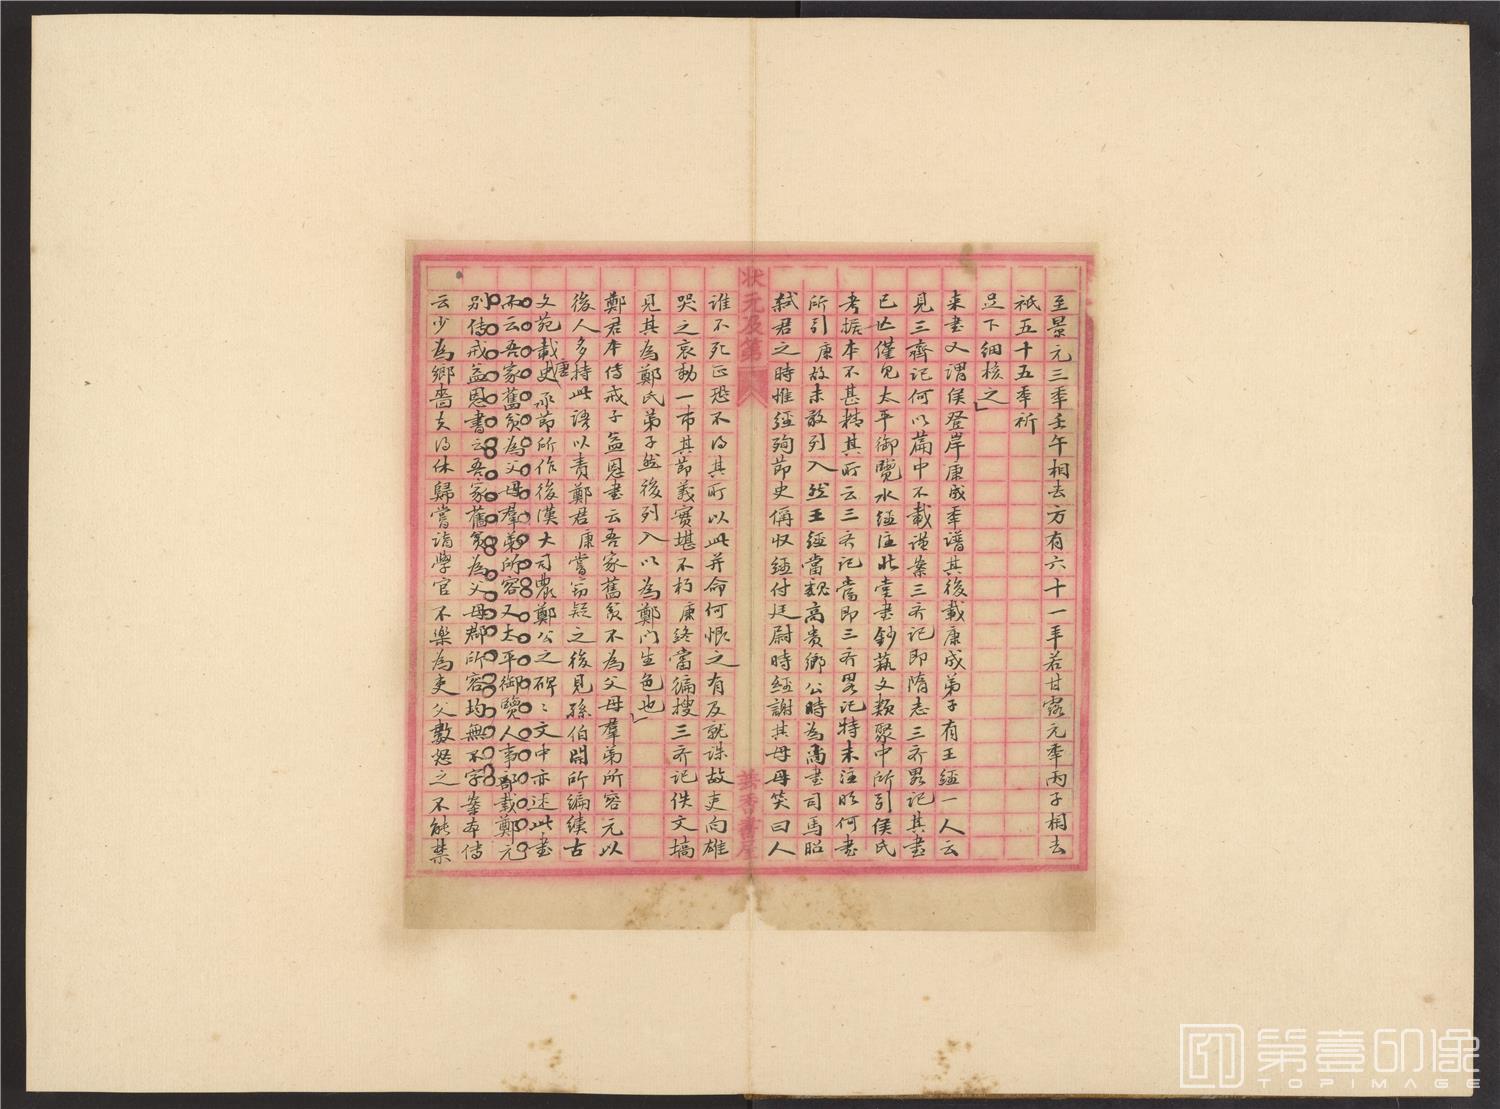 至景元三年壬午相去方有六十一年若甘露元年丙子相去
祇五十五年祈
足下細核之
來書又謂侯登岸康成年譜其後載康成弟子有王經一人云
見三齊記何以篇中不載謹案三齊記即隋志三齊畧記其書
已亡僅見太平御覽水經注北堂書鈔藝文類聚中所引侯氏
考據本不甚精其所云三齊記當即三齊畧記特未注明何書
所引康故未敢列入然王經當魏高貴鄉公時為尚書司馬昭
弒君之時惟經殉節史稱收經付廷尉時經謝其母母笑曰人
狀元及第
芸香書屋
誰不死正恐不得其所以此并命何恨之有及就誅故吏向雄
哭之哀動一市其節義實堪不朽康終當徧搜三齊記佚文搞
見其為鄭氏弟子然後列入以為鄭門生色也
鄭君本傳戒子益恩書云吾家舊貧不為父母羣弟所容元以
後人多持此語以責鄭君康嘗竊疑之後見孫伯開所編續古
文苑載唐史承節所作後漢大司農鄭公之碑碑文中亦述此書
而云吾家舊貧為父母羣弟所容又太平御覽人事部載鄭元
別傳戒益恩書云吾家舊貧為父母郡所容均無不字案本傳
云少為鄉嗇夫得休歸嘗詣學官不樂為吏父數怒之不能禁
第壹印像
TOPIMAGE